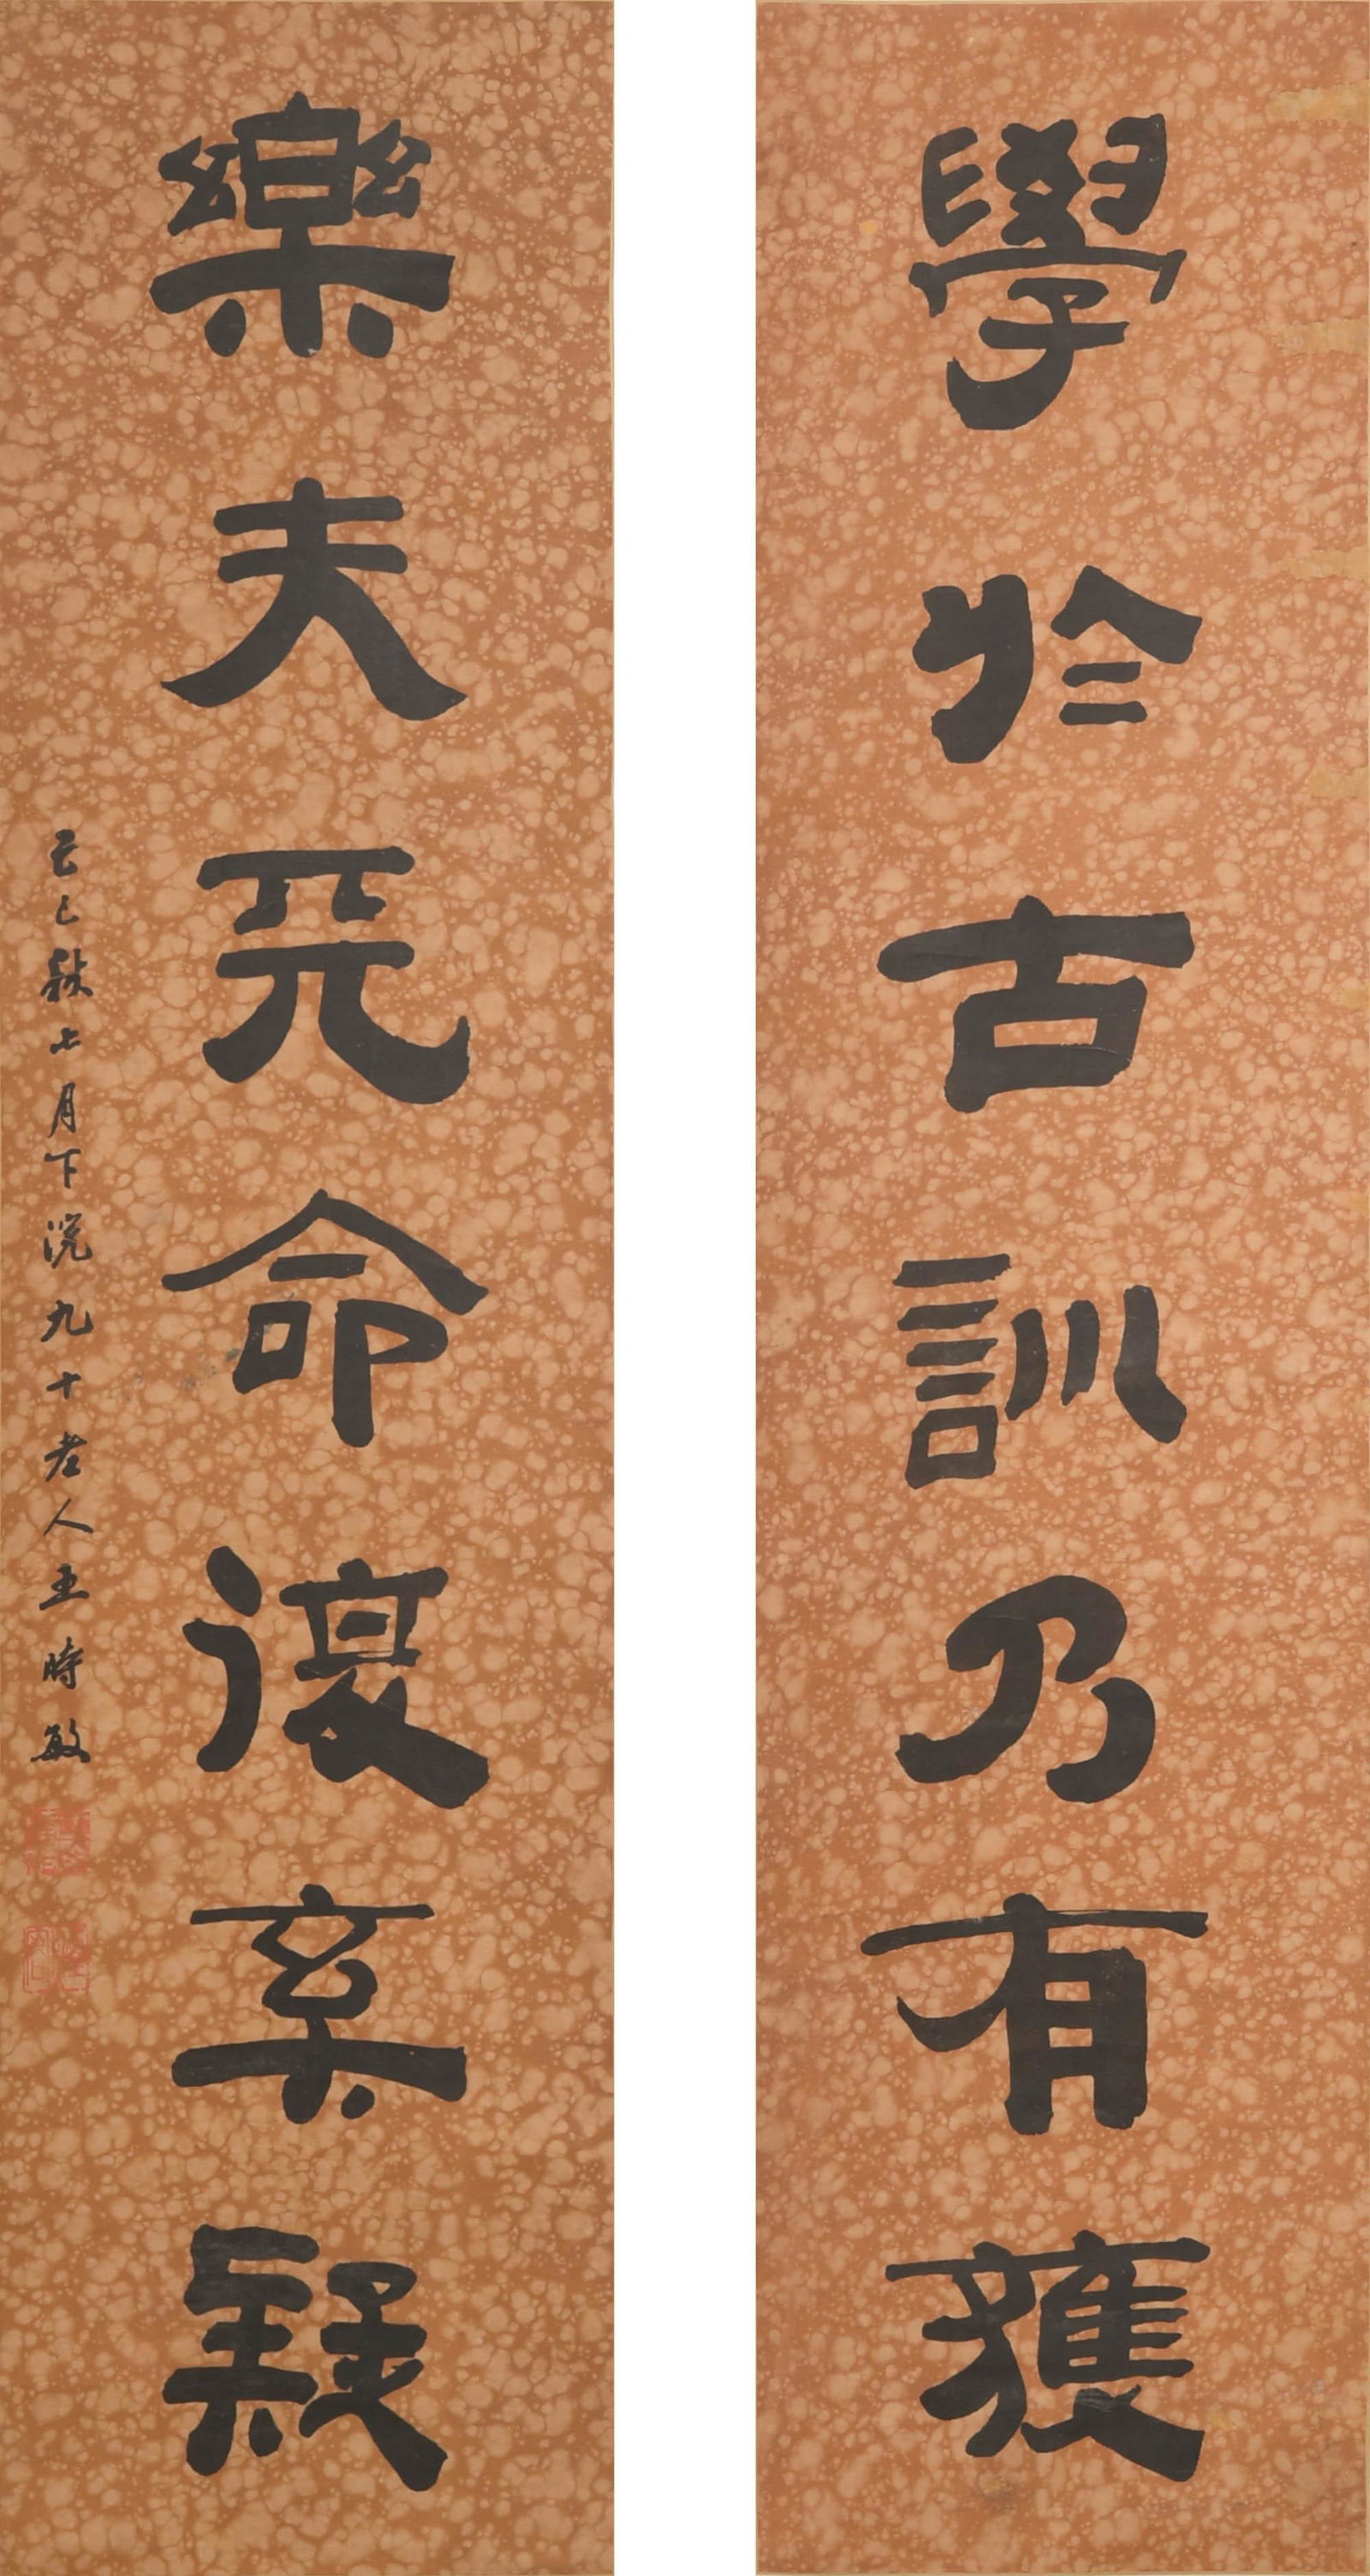 學於古訓乃有獲
樂夫天命復奚疑
己巳秋七月下浣九十老人王時敏